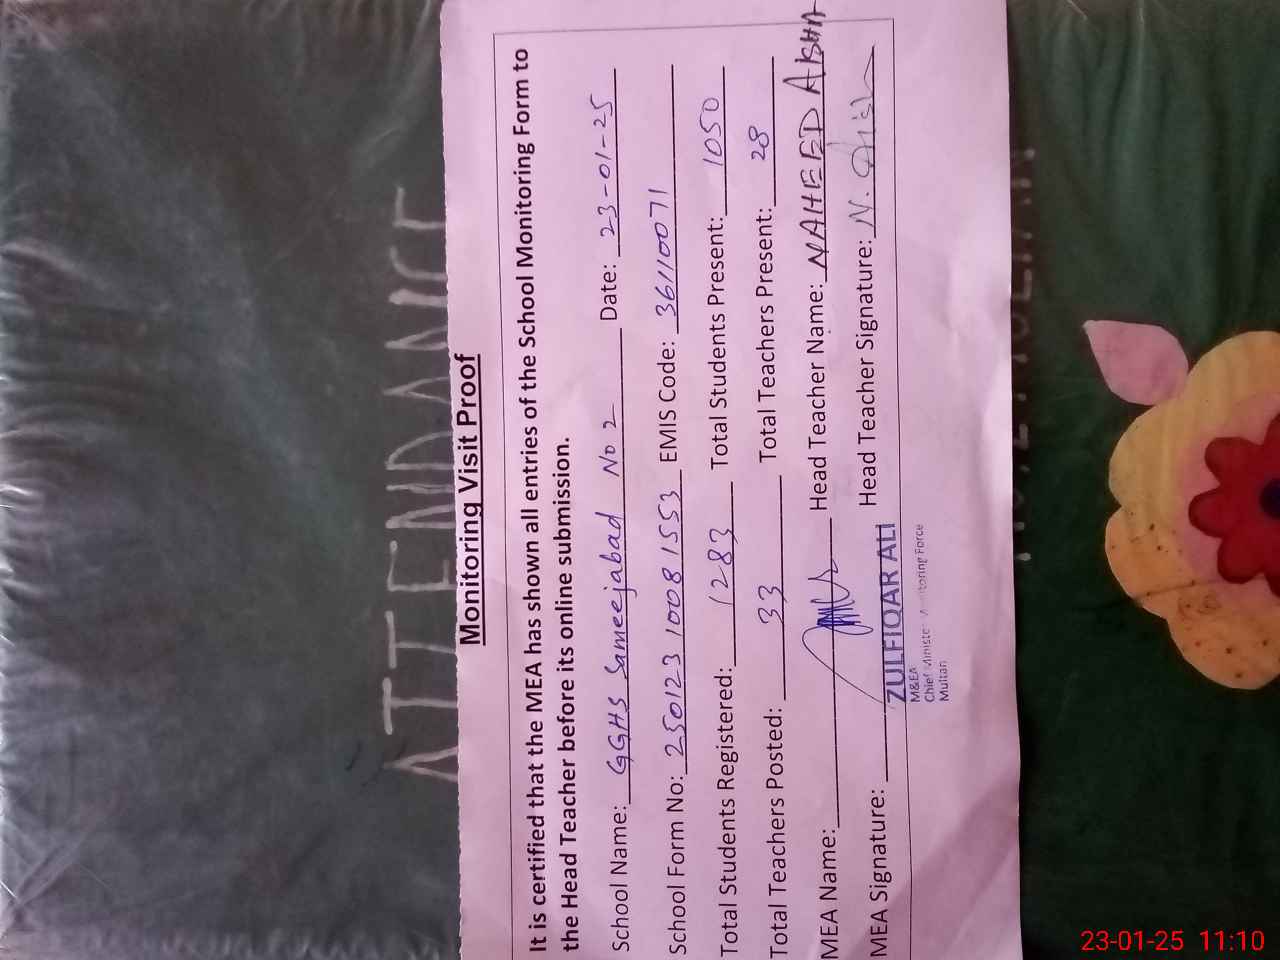 ATTENDANCE
Monitoring Visit Proof
It is certified that the MEA has shown all entries of the School Monitoring Form to
the Head Teacher before its online submission.
School Name: GGHS Sameejabad No 2 Date: 23-01-25
School Form No: 250123 1008 1553 EMIS Code: 36110071
Total Students Registered: 1283 Total Students Present: 1050
Total Teachers Posted: 33 Total Teachers Present: 28
MEA Name: Head Teacher Name: NAHEED AKHTAR
MEA Signature: Head Teacher Signature: N.
ZULFIQAR ALI
M&EA
Chief Minister Monitoring Force
Multan
23-01-25 11:10